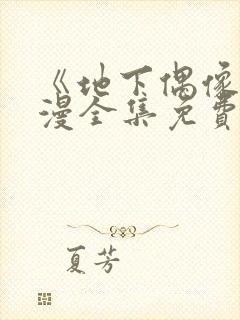 《地下偶像
漫全集免費
夏芳